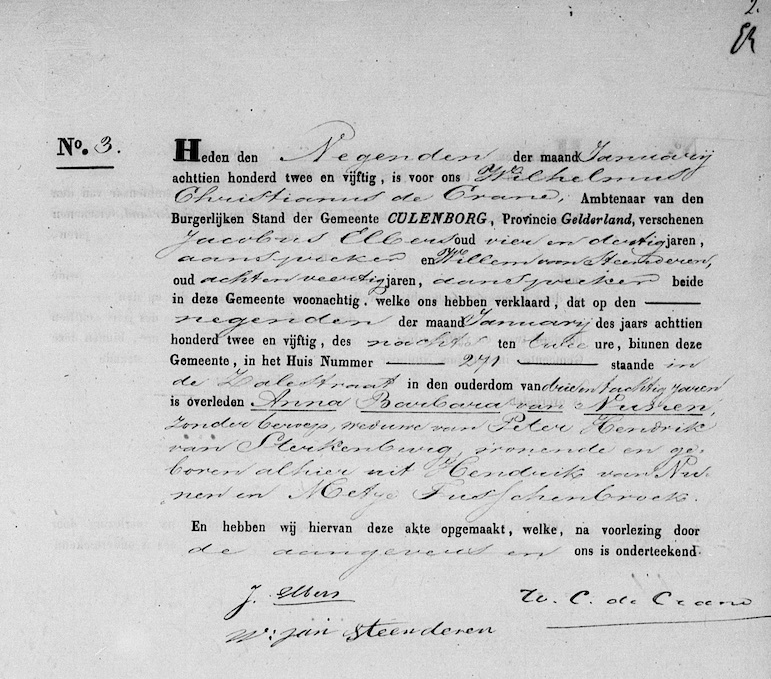 2.
No. 3.
Heden den Negenden der maand January
achttien honderd twee en vijftig, is voor ons Wilhelmus
Christianus de Crane, Ambtenaar van den
Burgerlijken Stand der Gemeente CULENBORG, Provincie Gelderland, verschenen
Jacobus Elbers oud vier en dertig jaren,
aanspreker en Willem van Steenderen,
oud acht en veertig jaren, aanspreker beide
in deze Gemeente woonachtig, welke ons hebben verklaard, dat op den
negenden der maand January des jaars achttien
honderd twee en vijftig, des nachts ten twee ure, binnen deze
Gemeente, in het Huis Nummer 271 staande in
de Zalestraat in den ouderdom van drie en tachtig jaren
is overleden Anna Barbara van Nunen,
zonder beroep, weduwe van Peter Hendrik
van Sterkenburg, wonende en ge-
boren alhier uit Hendrik van Nu-
nen en Metje Tusschenbroek.
En hebben wij hiervan deze akte opgemaakt, welke, na voorlezing door
de aangevers en ons is onderteekend
J. Elbers W. C. de Crane
W: van Steenderen